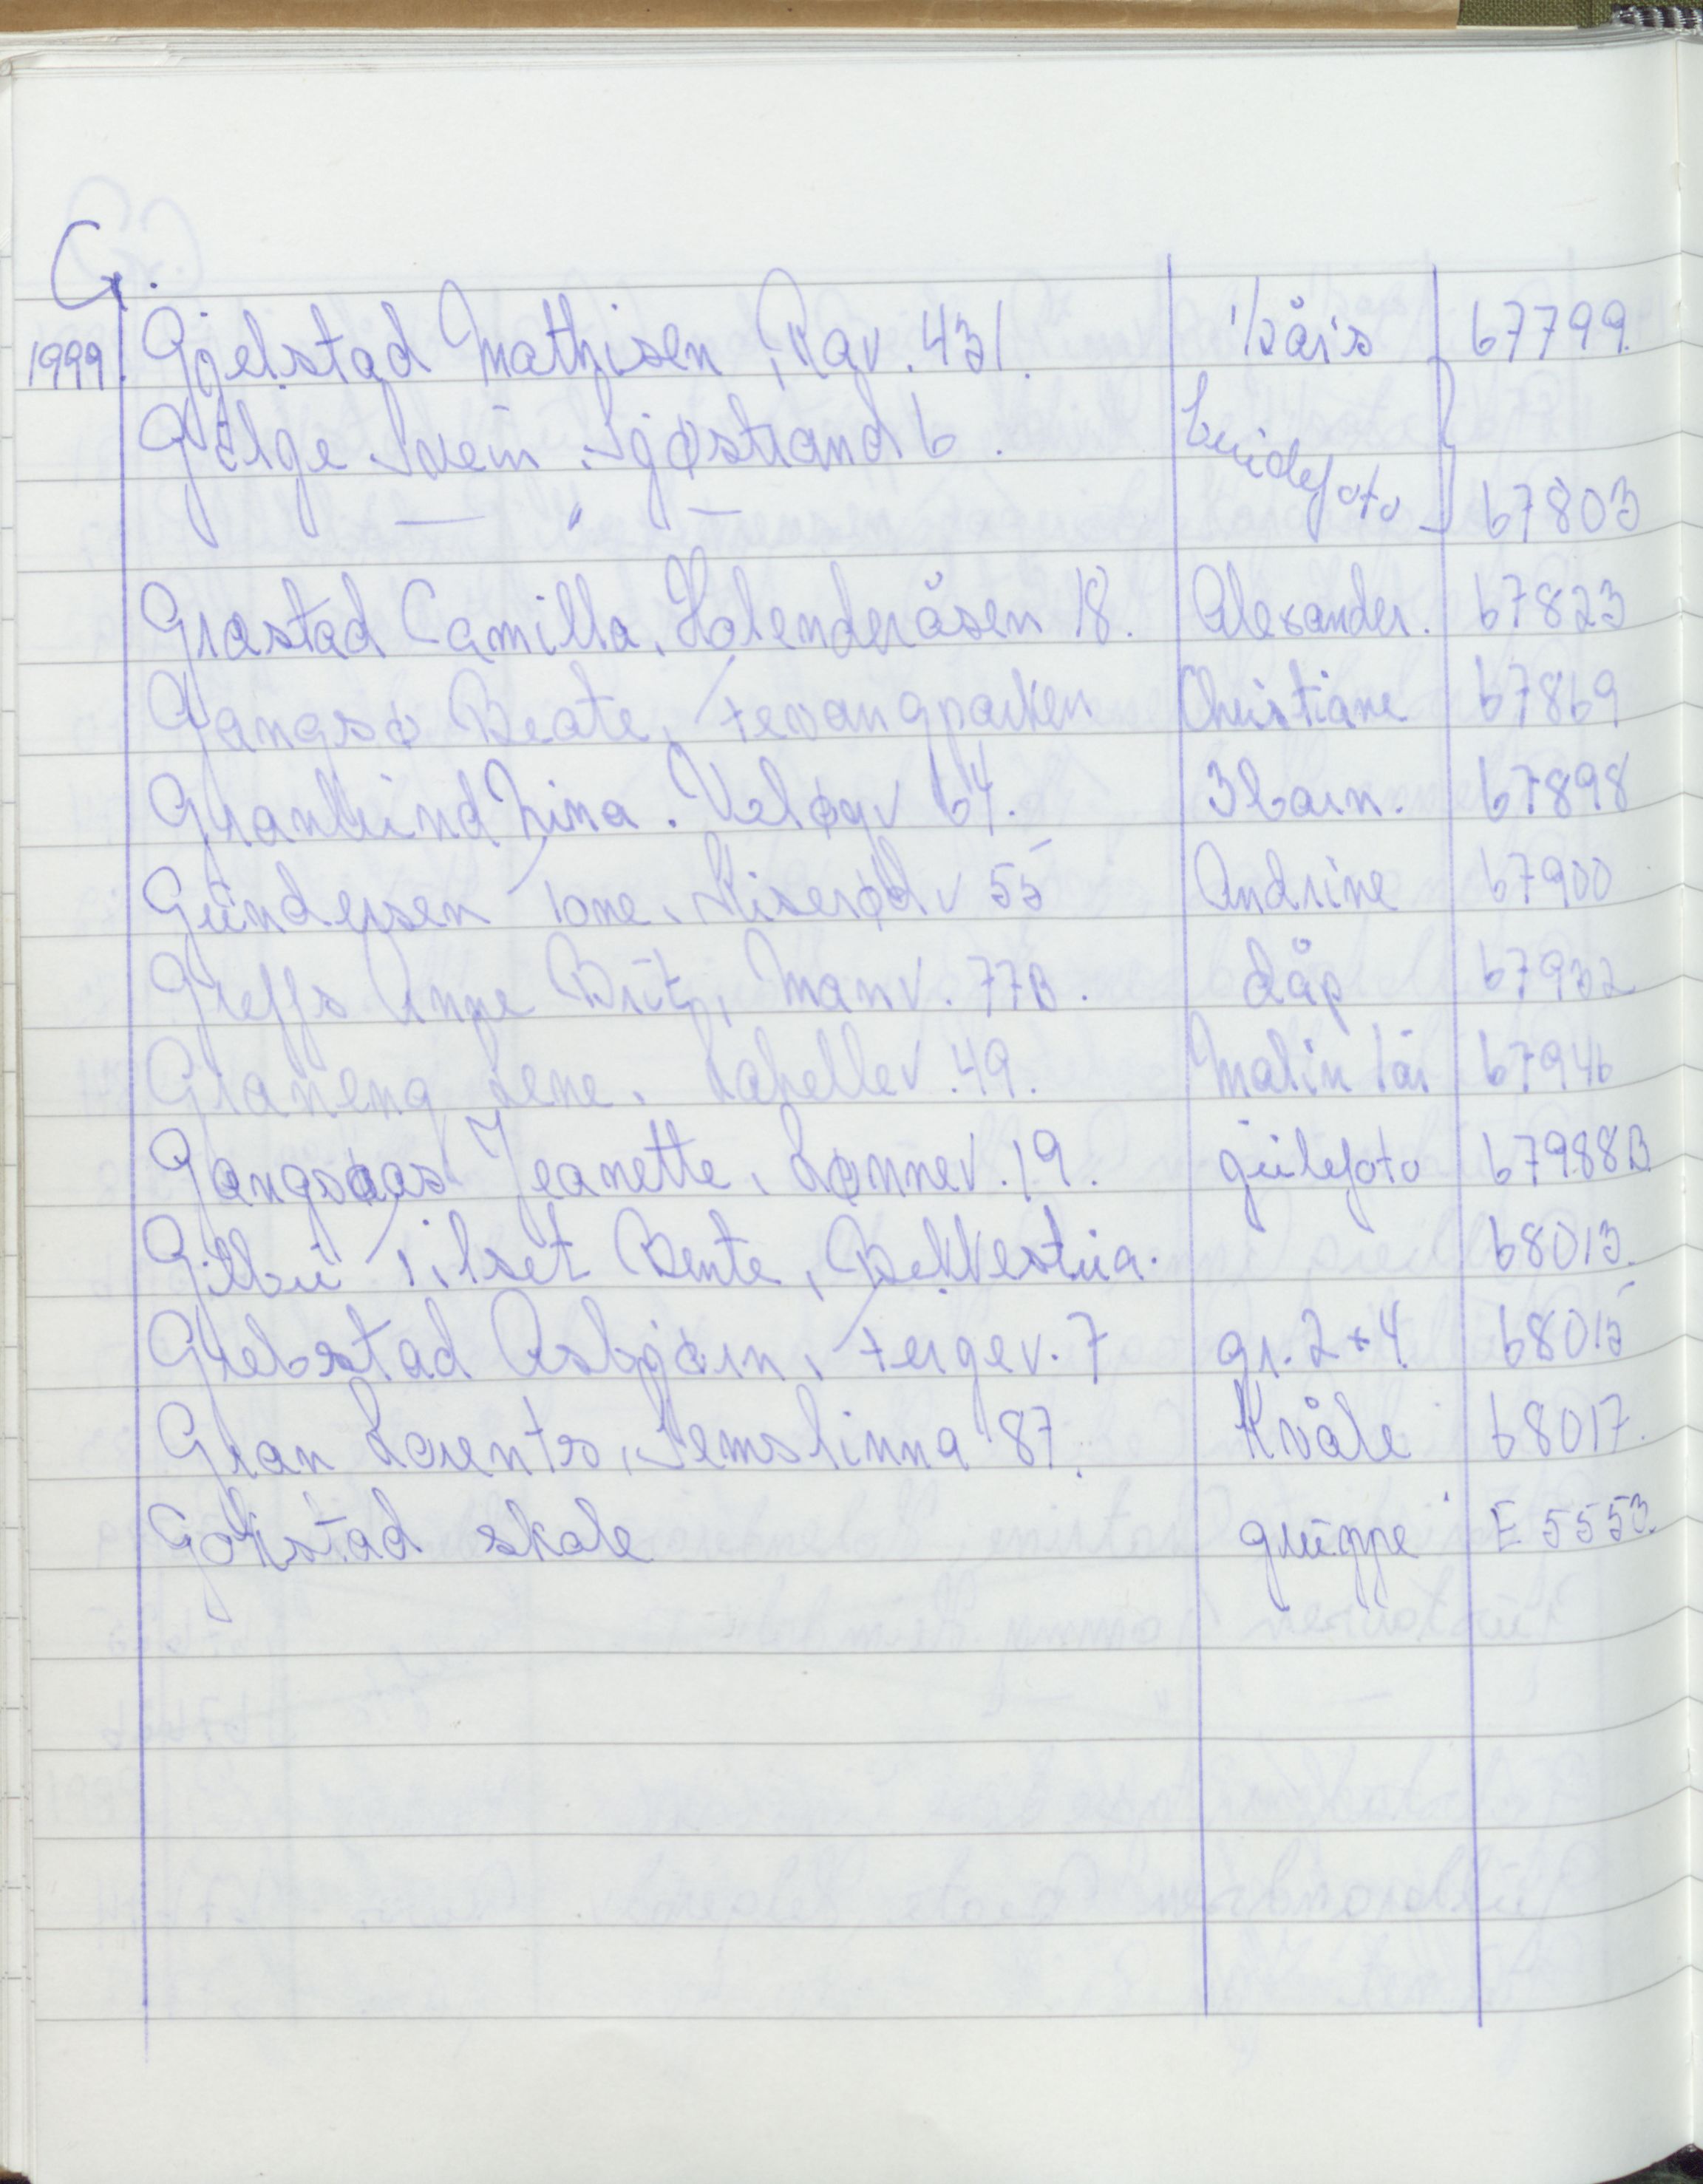 G.
1999 Gjelstad Mathisen, Rav. 431. 1/2 års 67799.
Gælge Svein, Sjøstrand 6. brudefoto
— " — 67803
Grastad Camilla, Holenderåsen 18. Alexander. 67823
Gangsø Beate, Tevangparken Christiane 67869
Granlund Nina. Veløyv 64. 3 barn. 67898
Gundersen Tone, Miserødv 55 Andrine 67900
Greffs Anne Brit, Manv. 77B. dåp 67932
Graneng Lene, Kapellev. 49. Malin 1 år 67946
Gangsaas Jeanette, Lønnev. 19. julefoto 67988B
Gilbu Tilset Bente, Bekkestua. 68013.
Grebstad Asbjørn, Fergev. 7 gr. 2+4. 68015
Gran Lorents, Semslinna 87. Kvåle 68017.
Gokstad skole gruppe E 5553.